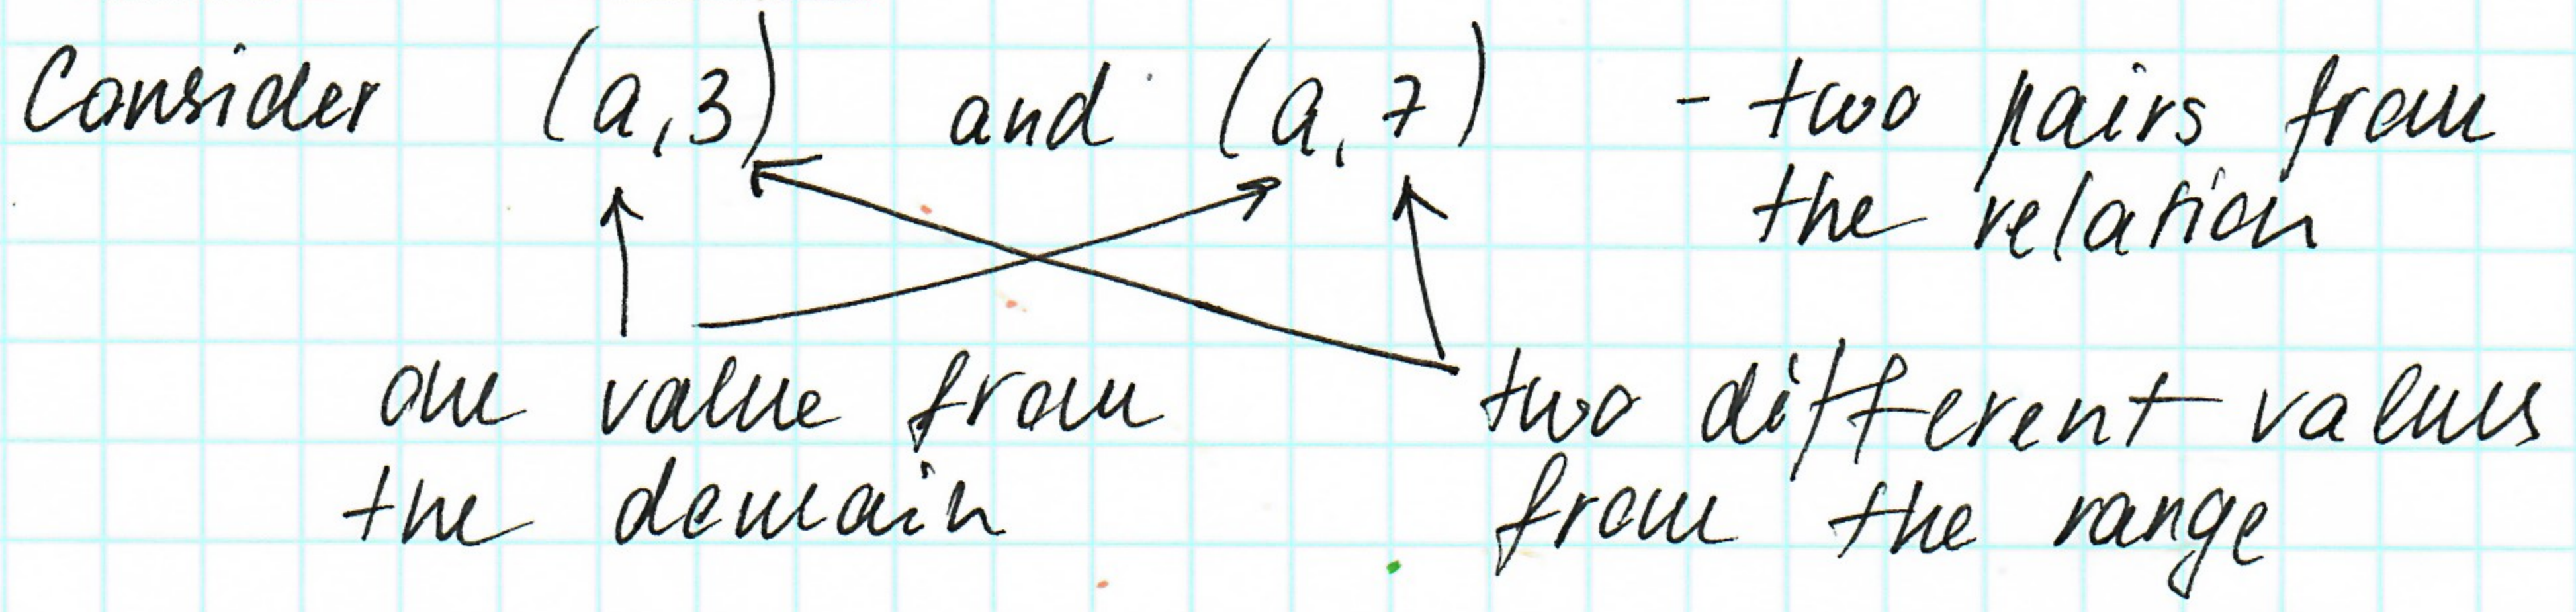 Consider (a,3) and (a,7) - two pairs from
the relation
one value from
the domain
two different values
from the range